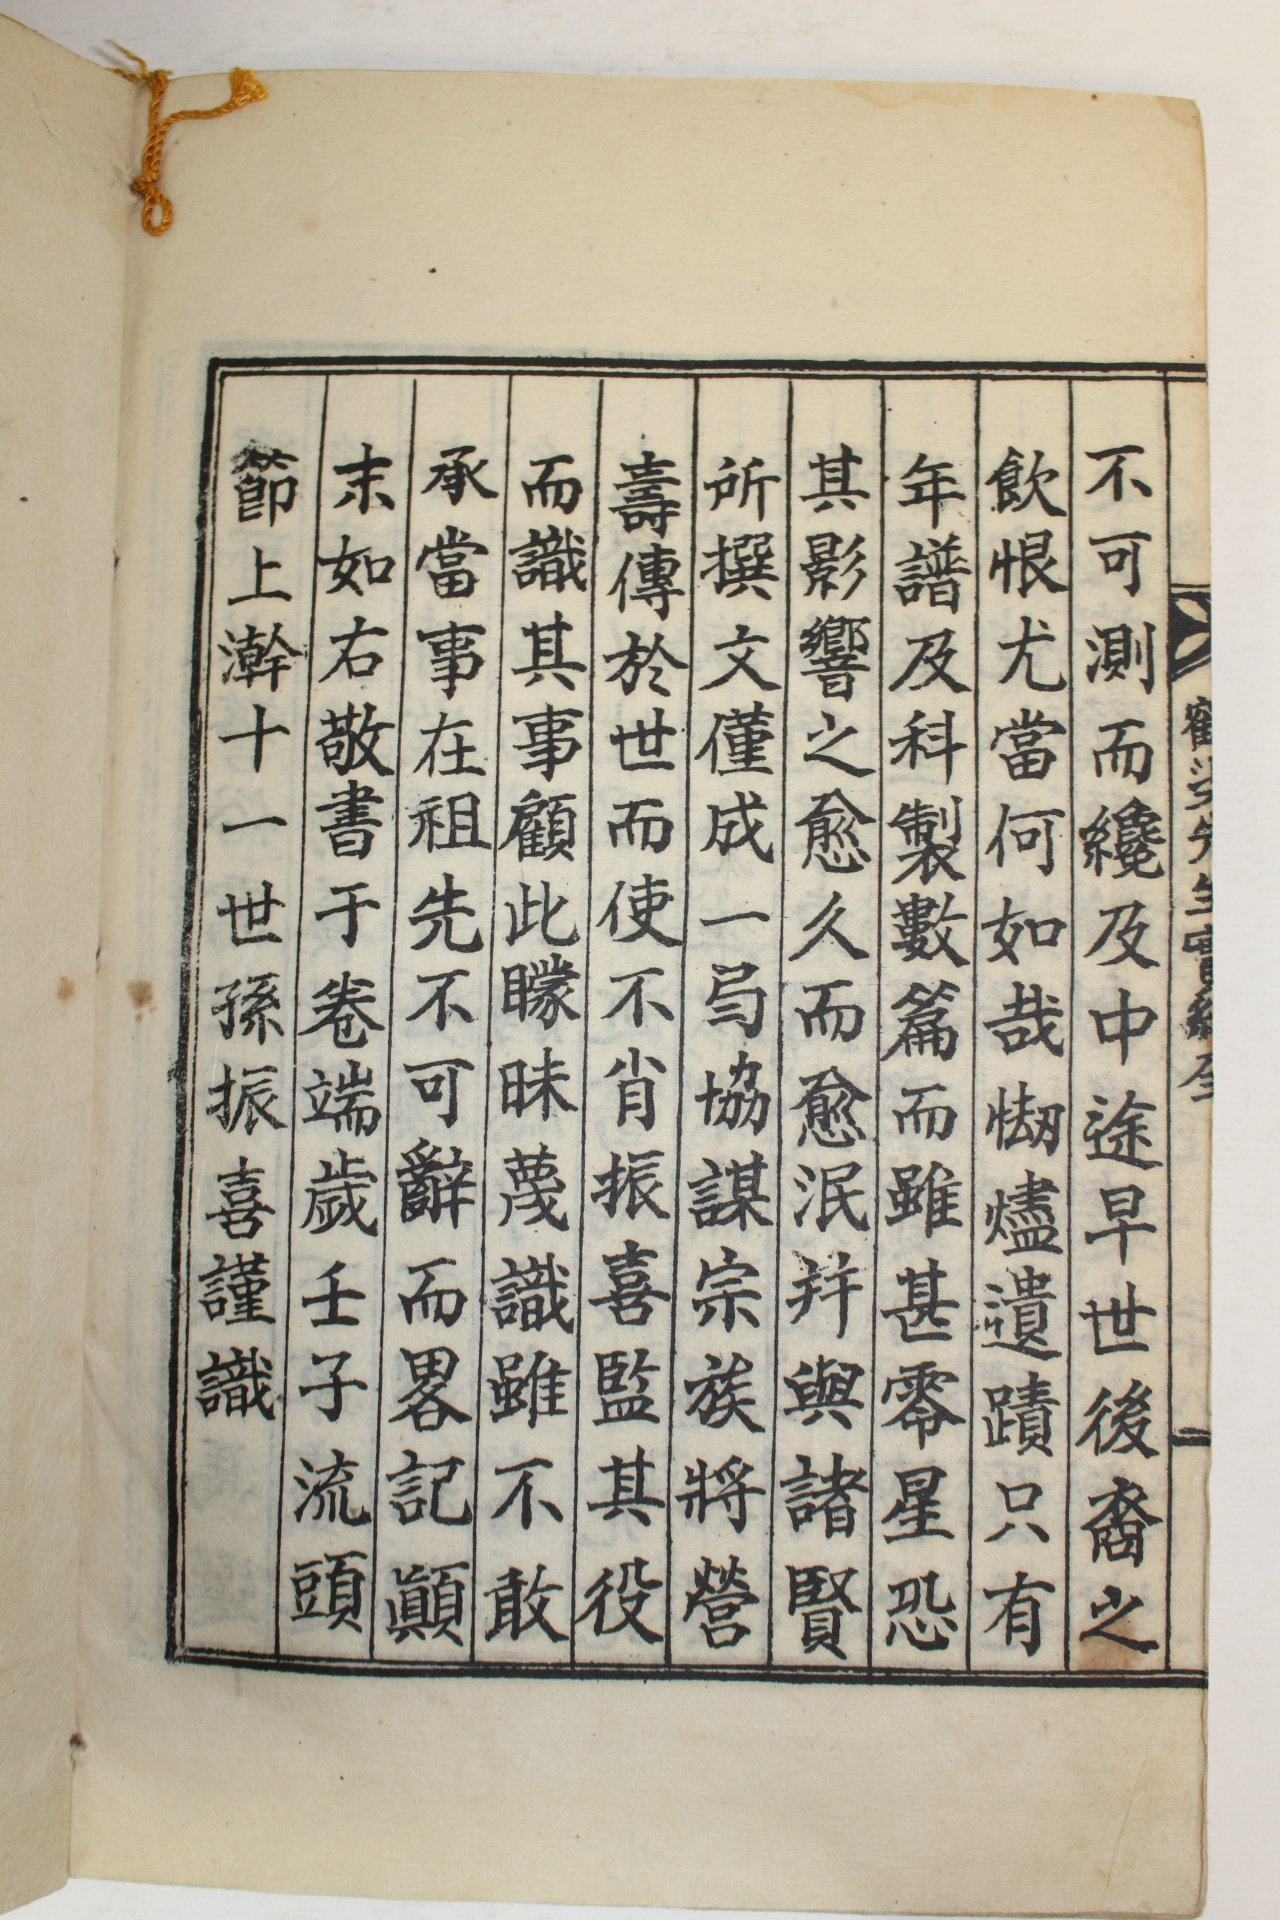 不可測而纔及中途早世後裔之
飮恨尤當何如哉㤼燼遺蹟只有
年譜及科製數篇而雖甚零星恐
其影響之愈久而愈泯并與諸賢
所撰文僅成一局協謀宗族將營
壽傳於世而使不肖振喜監其役
而識其事顧此矇昧蔑識雖不敢
承當事在祖先不可辭而畧記顚
末如右敬書于卷端歲壬子流頭
節上澣十一世孫振喜謹識
先生實紀全